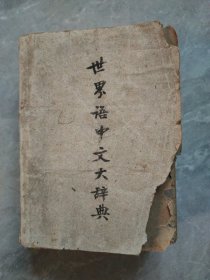 世界语中文大辞典